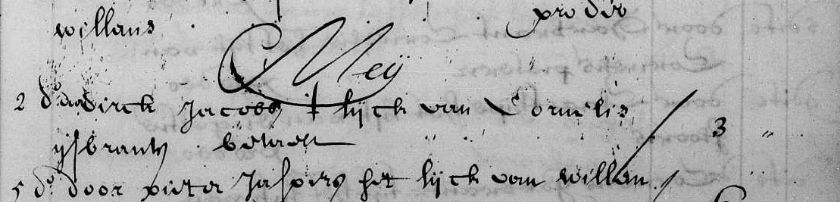 willans pro dio
Meij
2 do dirck Jacobs t lijck van Cornelis
ijsbrants betaelt " 3 "
5 do door pieter Jaspers het lijck van willan